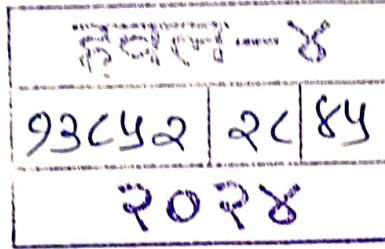 हवल - ४
१३८५२ २८ ४५
२०२४